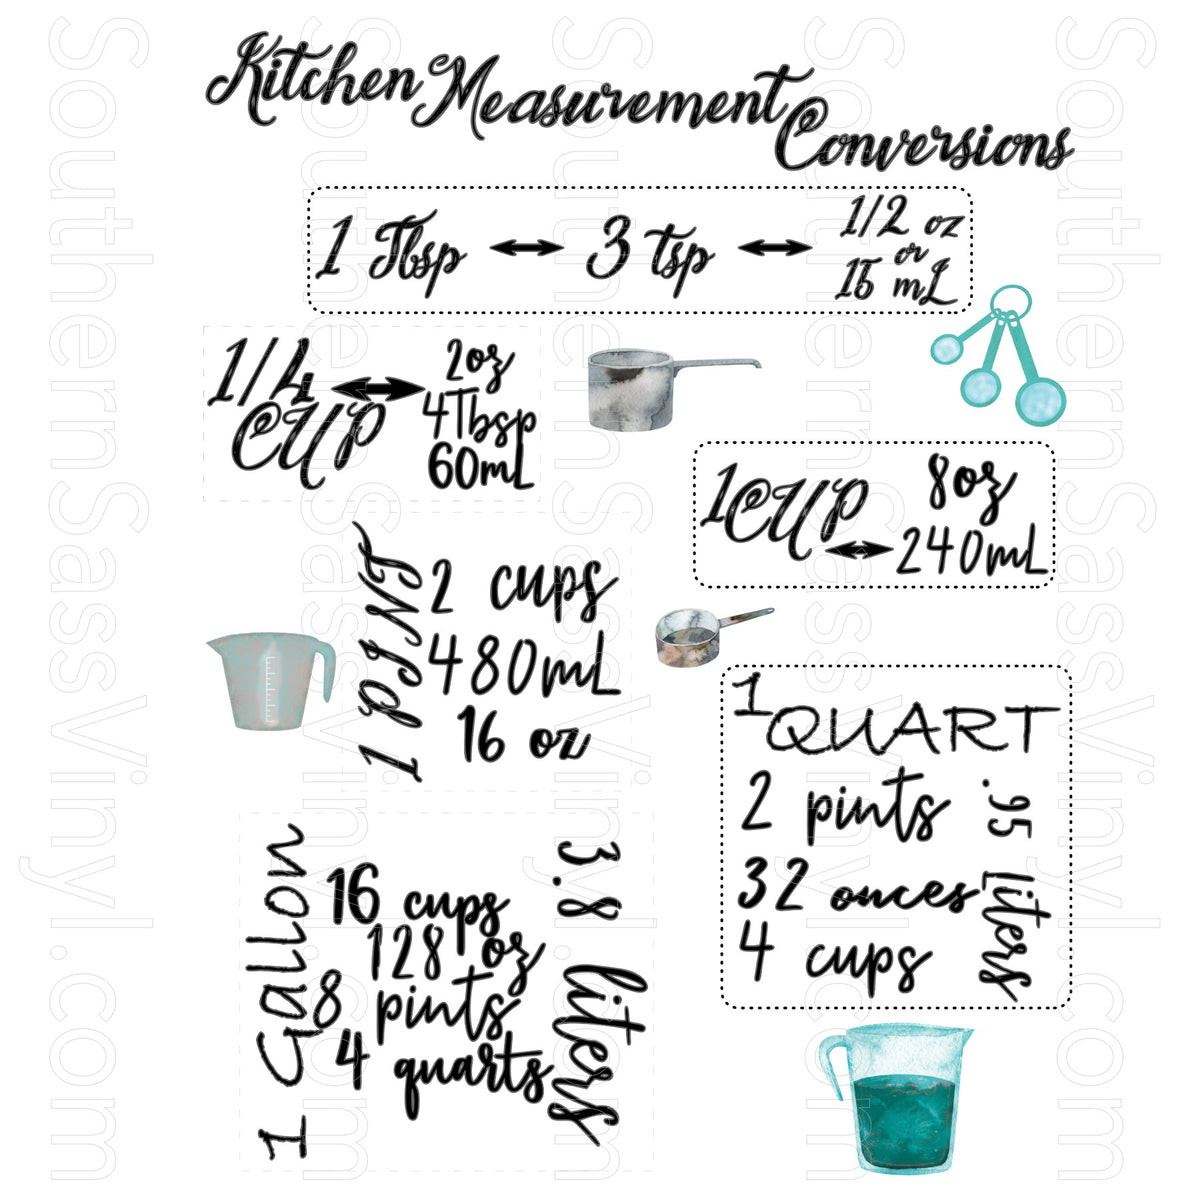 Kitchen Measurement Conversions
1 Tbsp 3 tsp 1/2 oz
or
15 mL
1/4 CUP
2oz
4Tbsp
60mL
1 CUP
8oz
240mL
1 PINT
2 cups
480mL
16 oz
1 QUART
2 pints
32 onces
4 cups
.95 liters
1 Gallon
16 cups
128 oz
8 pints
4 quarts
3.8 liters
SouthernSassVinyl.com
SouthernSassVinyl.com
SouthernSassVinyl.com
SouthernSassVinyl.com
SouthernSassVinyl.com